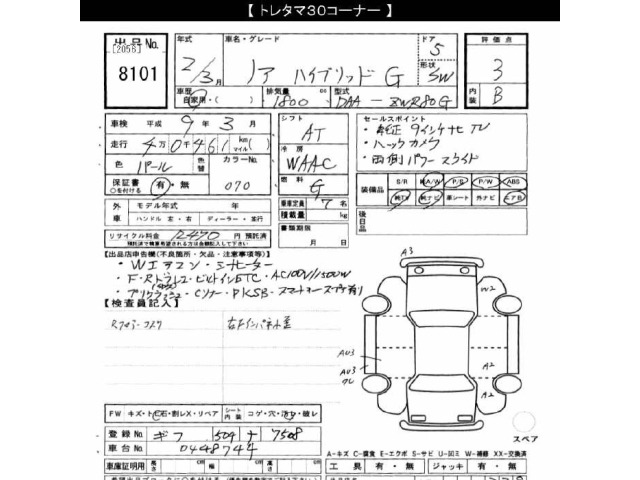 【 トレタマ30コーナー 】
出品No. 年式 車名・グレード ドア 評価点
[2056] 2/3月 ノア ハイブリッド G 5 3
8101 形状 SW
車歴 自家用・( ) 排気量 cc 型式 内装 B
1800 DAA-ZWR80G
車検 平成 9年 3月 シフト セールスポイント
走行 4万0千461 km マイル ( ) AT ・純正9インチナビTV
色 パール 色替 カラーNo. 冷房 ・バックカメラ
070 WAAC ・両側パワースライド
保証書 有・無 燃料 G
○を付ける
装備品 S/R A/W P/S P/W ABS
純TV 純ナビ 革シート 外ナビ エアB
外車 モデル年式 年 乗車定員 7名 後日品
ハンドル 右・左 ディーラー・並行 積載量 kg
リサイクル料金 12470円 預託済 書類期限
月 日
【出品店申告欄(不良箇所・欠品・注意事項等)】
・Wエアコン・シートヒーター
・F・Rドラレコ・ビルトインETC・AC100V/1500W
・Cソナー・PKSB・スマートキースペア有り
【検査員記入】
A3
W2
AU3
AU3
A2
A2
スペア
FW キズ・ト石・割レX・リペア シート内装 コゲ・穴・破レ
登録No. ギフ 504 ナ 7508
車台No. 0448744
A-キズ C-腐食 E-エクボ S-サビ U-凹ミ W-補修 XX-交換済
車庫証明用 長さ cm 幅 cm 高さ cm 工具 有・無 ジャッキ 有・無